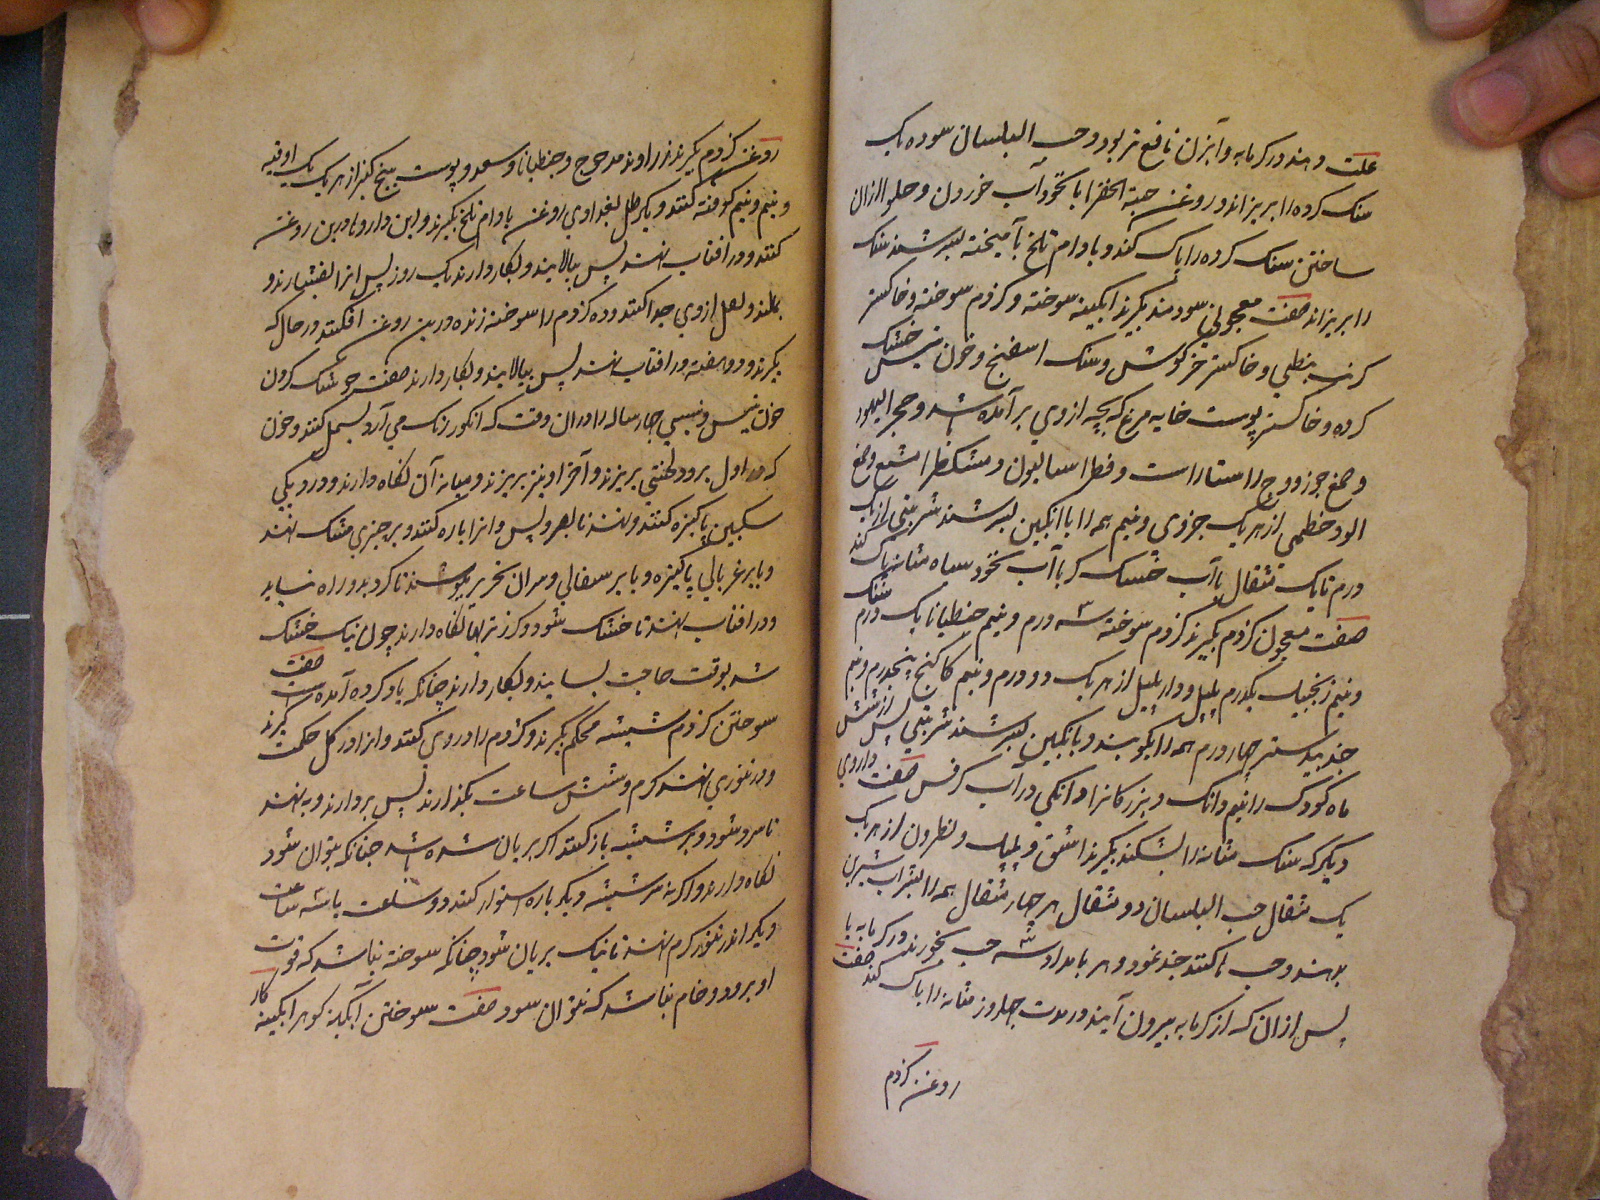 علت دهند در کرمابه و آبزن نافع تر بود و حب البلسان سوده یک
سنک کرده را بریزاند و روغن حبة الخضرا با نخود آب خوردن و حلوا ازان
ساختن سنک کرده را پاک کند و بادام تلخ بآمیخته بسرشند سنک
را بریزاند صفت معجونی سودمند بکیرند آبکینه سوخته و کژدم سوخته و خاکستر
کرنب نبطی و خاکستر خرکوش و سنک اسفنج و خون تیس خشک
کرده و خاکستر پوست خایه مرغ که بچه از وی برآمده باشد و حجر الیهود
و صمغ جوز و وج راستا راست و فطراسالیون و مشکطرامشیع و صمغ
الود خطمی از هر یک جزوی و نیم همه را با انکبین بسرشند شربتی از یک
درم تا یک مثقال بآب خسک کر با آب نخود سیاه مثانه پاک کند
صفت معجون کژدم بکیرند کژدم سوخته سه درم و نیم جنطیانا یک درم
و نیم زنجبیل یکدرم پلپل و دار پلپل از هر یک دو درم و نیم کاکنج پنجدرم و نیم
جندبیدستر چهار درم همه را بکوبند و بانکبین بسرشند شربتی پس از شش
ماه کودک را نیم دانک و بزرکانرا دانکی در آب کرفس صفت داروی
دیکر که سنک مثانه را بشکند بکیرند اشق و پلپل و نطرون از هر یک
یک مثقال حب البلسان دو مثقال هر چهار مثقال همه را بشراب شیرین
بهند و حب کنند چند نخود و هر بامداد سه حب بخورند در کرمابه یا
پس ازان که از کرمابه بیرون آیند در مدت چهل روز مثانه را پاک کند صفت
روغن کژدم
روغن کژدم بکیرند زراوند مدحرج و جنطیانا و سعد و پوست بیخ کبر از هر یک یک اوقیه
و نیم و نیم کوفته کنند و یکرطل بغدادی روغن بادام تلخ بکیرند و این داروها درین روغن
کنند و در افتاب نهند پس بپالایند و بکار دارند یک روز پس انرا بفشارند و
بملند و ثفل از وی جدا کنند و ده کژدم را سوخته زنده درین روغن افکنند در حال که
بکیرند و دو هفته در افتاب نهند پس بپالایند و بکار دارند صفت خشک کردن
خون تیس و تیسی چهار ساله را دران وقت که انکور رنک می آرد بسمل کنند و خون
که در اول برود لختی بریزند و آخر او نیز بریزند و میانه آن نکاه دارند و در دیکی
سنکین پاکیزه کنند و بنهند تا بفسرد پس وانرا پاره کنند و بر چیزی مشبک نهند
و یا بر غربالی پاکیزه و یا بر سفالی و سران بحریر بپوشند تا کرد بدو راه نیابد
و در افتاب نهند تا خشک شود و کر ز تریها نکاه دارند چون نیک خشک
شد بوقت حاجت بسایند و بکار دارند چنانکه یاد کرده آمده ست صفت
سوختن کژدم شیشه محکم بکیرند و کژدم را در وی کنند و انرا در کل حکمت کیرند
و در تنوری نهند کرم و شش ساعت بکذارند پس بردارند و بنهند
تا سرد شود و سر شیشه باز کنند اکر بریان شده باشد چنانکه بتوان سود
نکاه دارند و اکر نه سر شیشه دیکر باره استوار کنند دو ساعت یا سه ساعت
دیکر اندر تنور کرم نهند تا نیک بریان شود چنانکه سوخته نباشد که قوت
او برود و خام نباشد که نتوان سود صفت سوختن آبکینه کوهر آبکینه کار